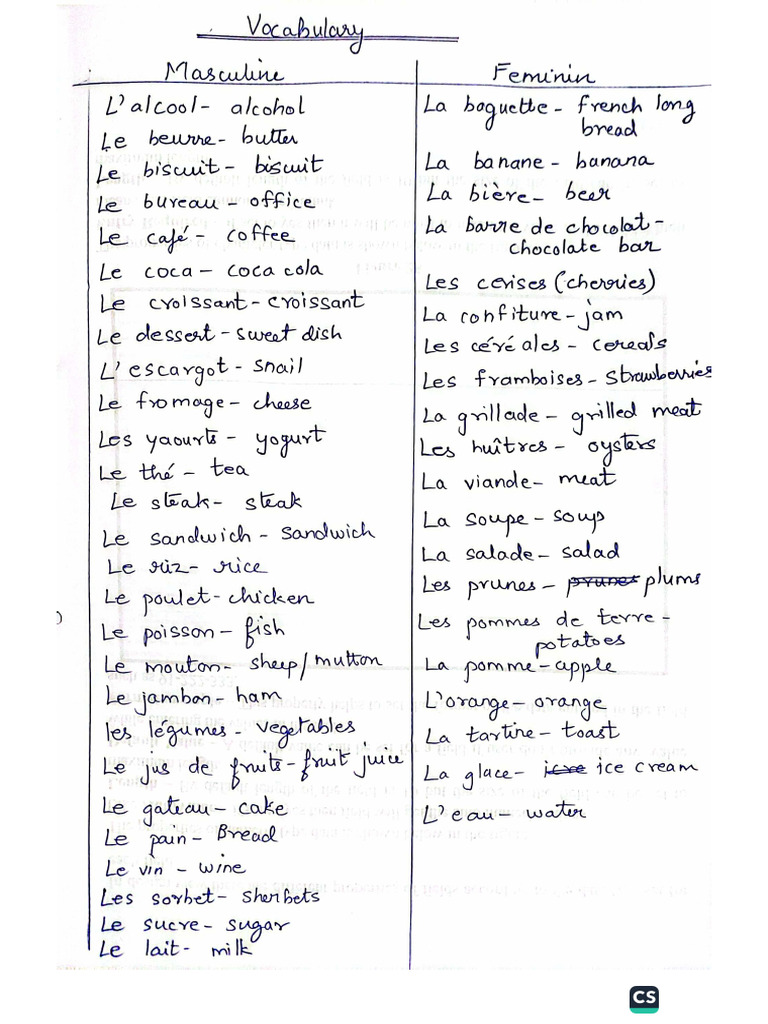 Vocabulary
Masculine
L'alcool - alcohol
Le beurre - butter
Le biscuit - biscuit
Le bureau - office
Le café - coffee
Le coca - coca cola
Le croissant - croissant
Le dessert - sweet dish
L'escargot - snail
Le fromage - cheese
Les yaourts - yogurt
Le thé - tea
Le steak - steak
Le sandwich - sandwich
Le riz - rice
Le poulet - chicken
Le poisson - fish
Le mouton - sheep/mutton
Le jambon - ham
les légumes - vegetables
Le jus de fruits - fruit juice
Le gateau - cake
Le pain - Bread
Le vin - wine
Les sorbet - sherbets
Le sucre - sugar
Le lait - milk
Feminin
La baguette - french long
bread
La banane - banana
La bière - beer
La barre de chocolat -
chocolate bar
Les cerises (cherries)
La confiture - jam
Les céréales - cereals
Les framboises - strawberries
La grillade - grilled meat
Les huîtres - oysters
La viande - meat
La soupe - soup
La salade - salad
Les prunes - prunes plums
Les pommes de terre -
potatoes
La pomme - apple
L'orange - orange
La tartine - toast
La glace - ice cream
L'eau - water
CS